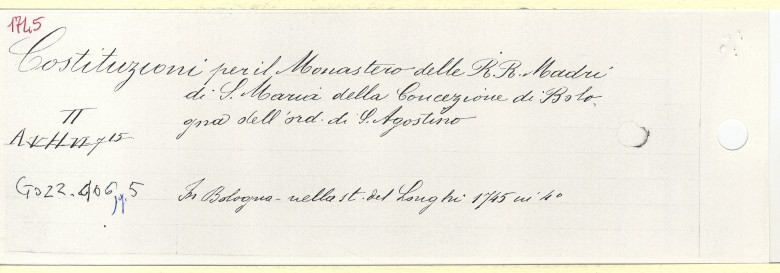 1745
Costituzioni per il Monastero delle R.R. Madri
di S. Maria della Concezione di Bolo-
gna dell'ord. di S. Agostino
II
A VHVI 7 15
G022.406, 5
In Bologna - nella st. del Longhi 1745 in 4°